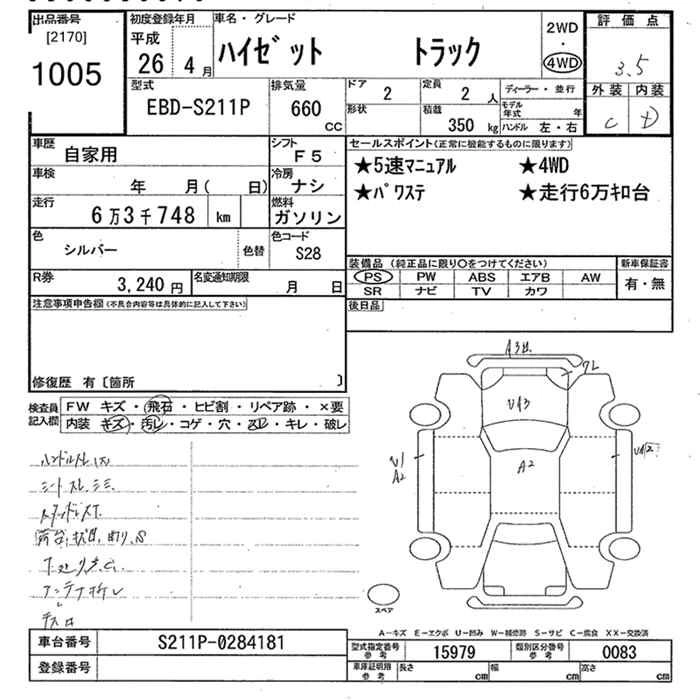 出品番号
[2170]
1005
初度登録年月
平成
26 4 月
車名・グレード
ハイゼット トラック
2WD
・
4WD
評価点
3.5
外装 内装
C D
型式
EBD-S211P
排気量
660 CC
ドア
2
定員
2 人
形状
積載
350 kg
ディーラー・並行
モデル年式 年
ハンドル 左・右
車歴
自家用
シフト
F5
車検
年 月( 日)
冷房
ナシ
走行
6万3千748 km
燃料
ガソリン
色
シルバー
色替
色コード
S28
R券
3,240 円
名変通知期限
月 日
セールスポイント(正常に機能するものに限ります)
★5速マニュアル ★4WD
★パワステ ★走行6万キロ台
装備品(純正品に限り○をつけてください)
PS PW ABS エアB AW
SR ナビ TV カワ
新車保証書
有・無
後日品
注意事項申告欄(不具合内容等は具体的に記入して下さい)
修復歴 有〔箇所 〕
検査員記入欄
FW キズ・飛石・ヒビ割・リペア跡・×要
内装 キズ・汚レ・コゲ・穴・スレ・キレ・破レ
ハンドルスレ
シートスレ、シミ
アンテナ折レ
A3
UA3
A2
U1
A2
スペア
A―キズ E―エクボ U―凹み W―補修跡 S―サビ C―腐食 XX―交換済
車台番号
S211P-0284181
登録番号
型式指定番号参考
15979
類別区分番号参考
0083
車庫証明用参考
長さ cm
幅 cm
高さ cm